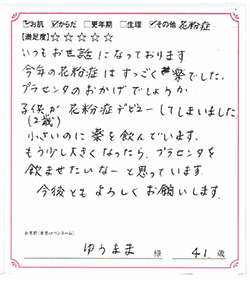 ☑お肌 ☑からだ □更年期 □生理 ☑その他 花粉症
【満足度】☆☆☆☆☆
いつもお世話になっております
今年の花粉症はすっごく楽でした。
プラセンタのおかげでしょうか
子供が花粉症デビューしてしまいました
(2歳)
小さいのに薬を飲んでいます。
もう少し大きくなったら、プラセンタを
飲ませたいなーと思っています。
今後ともよろしくお願いします。
お名前(本名orペンネーム)
ゆうまま 様 41歳